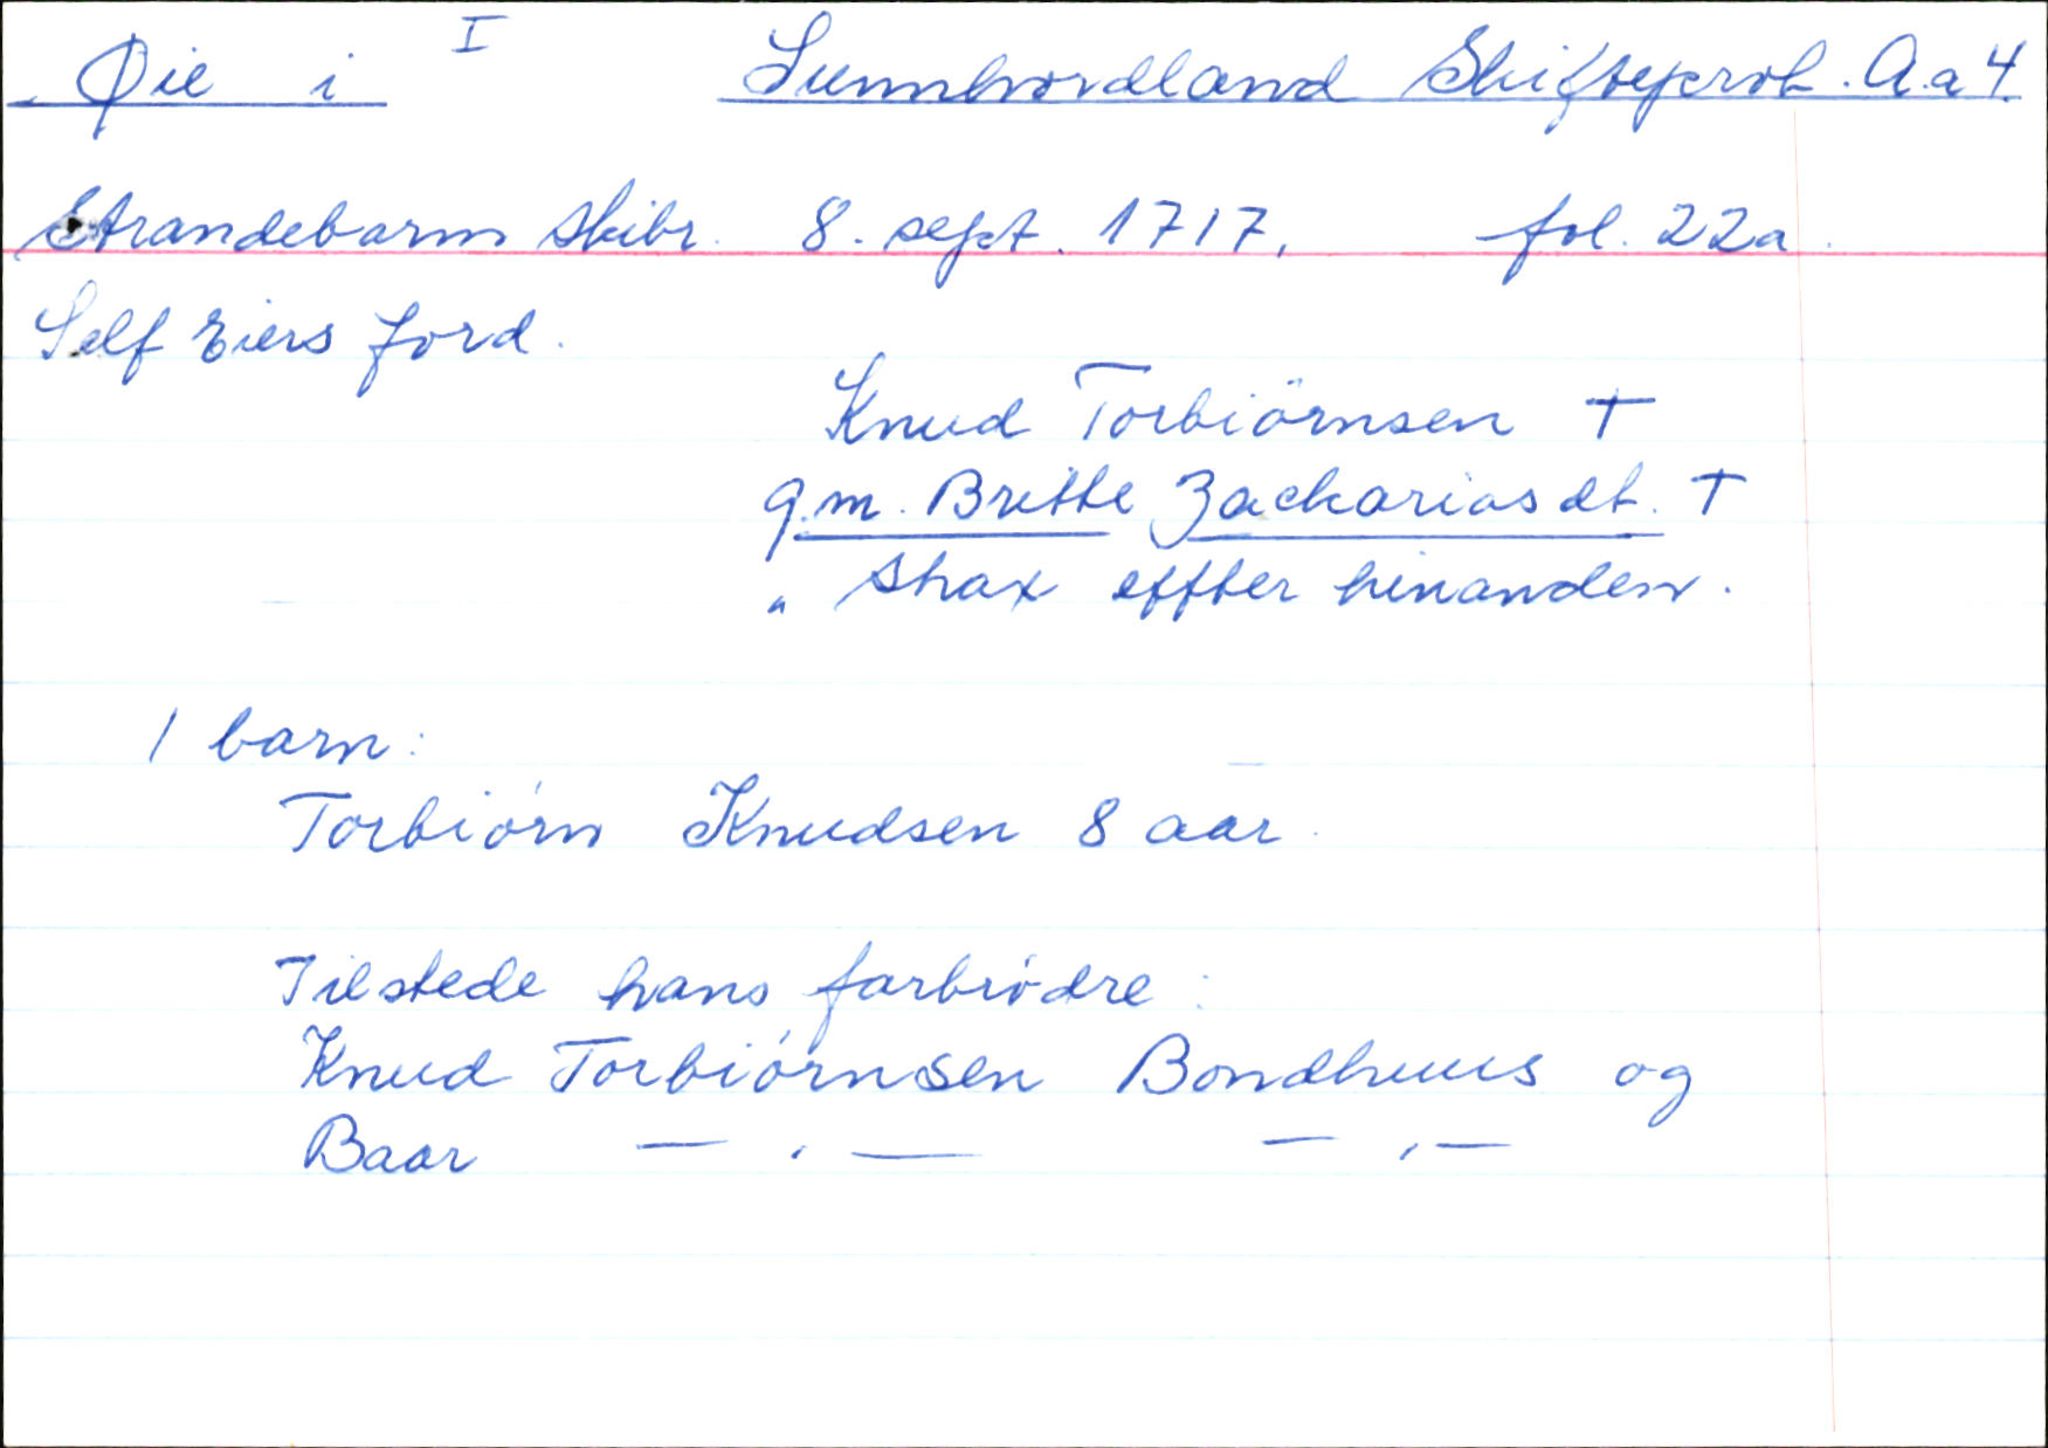 Øie i I Sunnhordland Skifteprot. A.a 4.
Strandebarm skibr. 8. sept. 1717, fol. 22a.
Self Eiers Jord.
Knud Torbiörnsen †
g.m. Britte Zachariasdt. †
" strax effter hinanden.
1 barn:
Torbiórn Knudsen 8 aar.
Tilstede hans farbródre:
Knud Torbiórnsen Bondhuus og
Baar — , — — , —